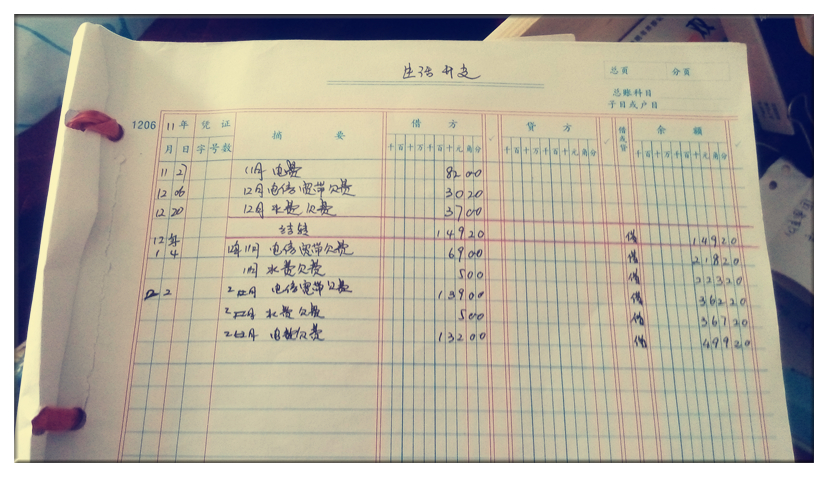 生活开支
总页 分页
总账科目
子目或户目
1206 11年 凭证 摘要 借方 贷方 借或贷 余额
月 日 字 号数 千百十万千百十元角分 千百十万千百十元角分 千百十万千百十元角分
11 27 11月 电费 8200
12 06 12月电信宽带欠费 3020
12 20 12月 水费欠费 3700
结转 14920 借 14920
12年
1 4 11月 电信宽带欠费 6900 借 21820
1月 水费欠费 500 借 22320
2 2 2月 电信宽带欠费 13900 借 36220
2月 水费欠费 500 借 36720
2月 电费欠费 13200 借 49920